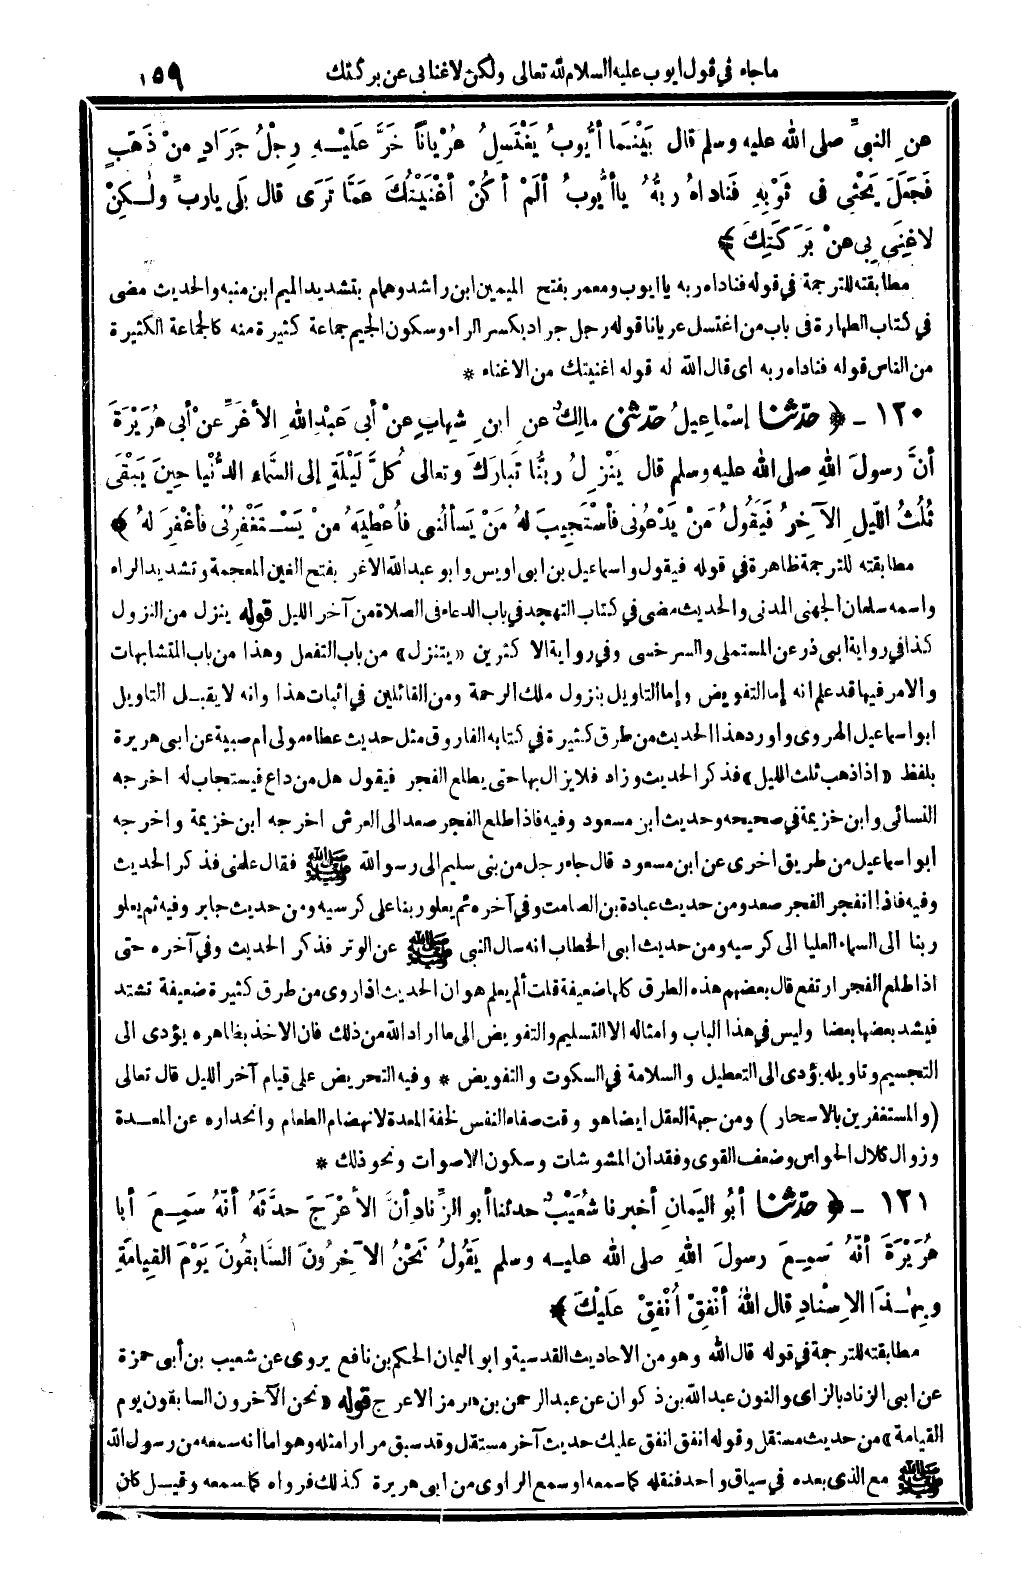 ما جاء في قول ايوب عليه السلام لله تعالى ولكن لا غنا بي عن بركتك ١٥٩
عنِ النبيِّ صلى الله عليه وسلم قال بَيْنَما أيُّوبُ يَغْتَسِلُ عُرْياناً خَرَّ عَلَيْـهِ رِجْلُ جَرَادٍ منْ ذَهَبٍ
فَجَعَلَ يَحْثِى فى ثَوْبِهِ فَنَاداهُ ربُّهُ ياأيُّوبُ ألَمْ أكُنْ أغْنَيْتُكَ عَمَّا تَرَى قال بَلَى ياربِّ ولٰـكِنْ
لاغِنَى بِى عنْ بَرَكَتِكَ ﴾
مطابقته للترجمة في قوله فناداه ربه يا ايوب ومعمر بفتح الميمين ابن راشد وهمام بتشديد الميم ابن منبه والحديث مضى
في كتاب الطهارة فى باب من اغتسل عريانا قوله رجل جراد بكسر الراء وسكون الجيم جماعة كثيرة منه كالجماعة الكثيرة
من الناس قوله فناداه ربه اى قال الله له قوله اغنيتك من الاغناء *
١٢٠ - ﴿ حدّثنا إسْماعِيلُ حدّثنى مالِكٌ عنِ ابنِ شِهابٍ عنْ أبى عَبْدِ اللهِ الأغَرِّ عنْ أبى هُرَيْرَةَ
أنَّ رسولَ اللهِ صلى الله عليه وسلم قال يَنْزِلُ ربُّنا تَبارَكَ وتعالى كُلَّ لَيْلَةٍ إلى السَّماءِ الدُّنْيا حِينَ يَبْقَى
ثُلُثُ اللَّيلِ الآخِرُ فَيَقُولُ مَنْ يَدْعُونى فأسْتَجِيبَ لهُ مَنْ يَسألُنى فأُعْطِيَهُ منْ يَسْـتَغْفِرُنى فأغْفِرَ لهُ ﴾
مطابقته للترجمة ظاهرة في قوله فيقول واسماعيل بن ابى اويس وابو عبد الله الاغر بفتح الغين المعجمة وتشديد الراء
واسمه سلمان الجهنى المدنى والحديث مضى في كتاب التهجد في باب الدعاء فى الصلاة من آخر الليل قوله ينزل من النزول
كذا في رواية ابى ذر عن المستملى والسرخسى وفي رواية الاكثرين «يتنزل» من باب التفعل وهذا من باب المتشابهات
والامر فيها قد علم انه إما التفويض وإما التاويل بنزول ملك الرحمة ومن القائلين في اثبات هذا وانه لا يقبـل التاويل
ابو اسماعيل الهروى واورد هذا الحديث من طرق كثيرة في كتابه الفاروق مثل حديث عطاء مولى ام صبية عن ابى هريرة
بلفظ «اذا ذهب ثلث الليل» فذكر الحديث وزاد فلا يزال بها حتى يطلع الفجر فيقول هل من داع فيستجاب له اخرجه
النسائى وابن خزيمة في صحيحه وحديث ابن مسعود وفيه فاذا طلع الفجر صعد الى العرش اخرجه ابن خزيمة واخرجه
ابو اسماعيل من طريق اخرى عن ابن مسعود قال جاء رجل من بنى سليم الى رسو الله ﷺ فقال علمنى فذكر الحديث
وفيه فاذا انفجر الفجر صعد ومن حديث عبادة بن الصامت وفي آخره ثم يعلو ربنا على كرسيه ومن حديث جابر وفيه ثم يعلو
ربنا الى السماء العليا الى كرسيه ومن حديث ابى الخطاب انه سال النبى ﷺ عن الوتر فذكر الحديث وفي آخره حتى
اذا طلع الفجر ارتفع قال بعضهم هذه الطرق كلها ضعيفة قلت ألم يعلم هو ان الحديث اذا روى من طرق كثيرة ضعيفة تشتد
فيشد بعضها بعضا وليس في هذا الباب وامثاله الا التسليم والتفويض الى ما اراد الله من ذلك فان الاخذ بظاهره يؤدى الى
التجسيم وتاويله يؤدى الى التعطيل والسلامة في السكوت والتفويض * وفيه التحريض على قيام آخر الليل قال تعالى
(والمستغفرين بالاسحار) ومن جهة العقل ايضا هو وقت صفاء النفس لخفة المعدة لانهضام الطعام وانحداره عن المعـدة
وزوال كلال الحواس وضعف القوى وفقدان المشوشات وسكون الاصوات ونحو ذلك *
١٢١ - ﴿ حدّثنا أبُو اليَمانِ أخبرنا شُعَيْبٌ حدثنا أبو الزِّنادِ أنَّ الأعْرَجَ حدثَهُ أنّهُ سَمِـعَ أبا
هُرَيْرَةَ أنّهُ سَمِـعَ رسولَ اللهِ صلى الله عليـه وسلم يَقُولُ نَحْنُ الآخِرُونَ السَّابِقُونَ يَوْمَ القِيامَةِ
وبِهٰـذَا الإسْنادِ قال اللهُ أنْفِقْ أُنْفِقْ عَلَيْكَ ﴾
مطابقته للترجمة في قوله قال الله وهو من الاحاديث القدسية وابو اليمان الحكم بن نافع يروى عن شعيب بن أبى حمزة
عن ابى الزناد بالزاى والنون عبد الله بن ذكوان عن عبد الرحمن بن هرمز الاعرج قوله «نحن الآخرون السابقون يوم
القيامة» من حديث مستقل وقوله انفق انفق عليك حديث آخر مستقل وقد سبق مرارا مثله وهو اما انه سمعه من رسول الله
ﷺ مع الذى بعده في سياق واحد فنقله كما سمعه او سمع الراوى من ابى هريرة كذلك فرواه كما سمعه وقيـل كان